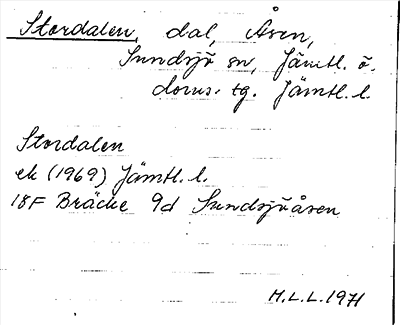 Stordalen, dal, Åsen,
Sundsjö sn, Jämtl. ö.
doms. tg. Jämtl. l.
Stordalen
ek (1969) Jämtl. l.
18F Bräcke 9d Sundsjöåsen
M.L.L. 1971